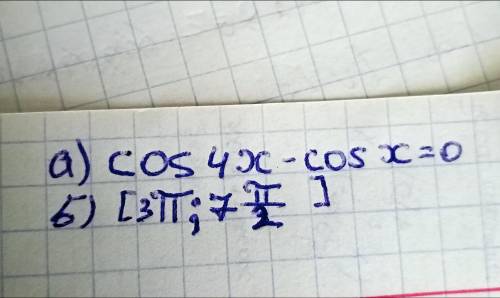 а) cos 4x - cos x = 0
б) [3π; 7 π/2 ]